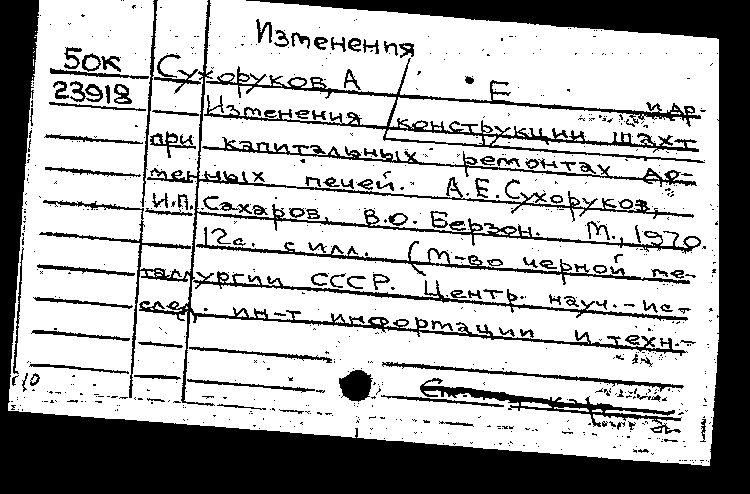 Изменения
50К Сухоруков, А Е и др.
23918 Изменения конструкции шахт
при капитальных ремонтах до-
менных печей. А.Е.Сухоруков,
И.П. Сахаров, В.О. Берзон. М., 1970.
12с. с илл. (М-во черной ме-
таллургии СССР. Центр. науч.-ис-
след. ин-т информации и техн.-